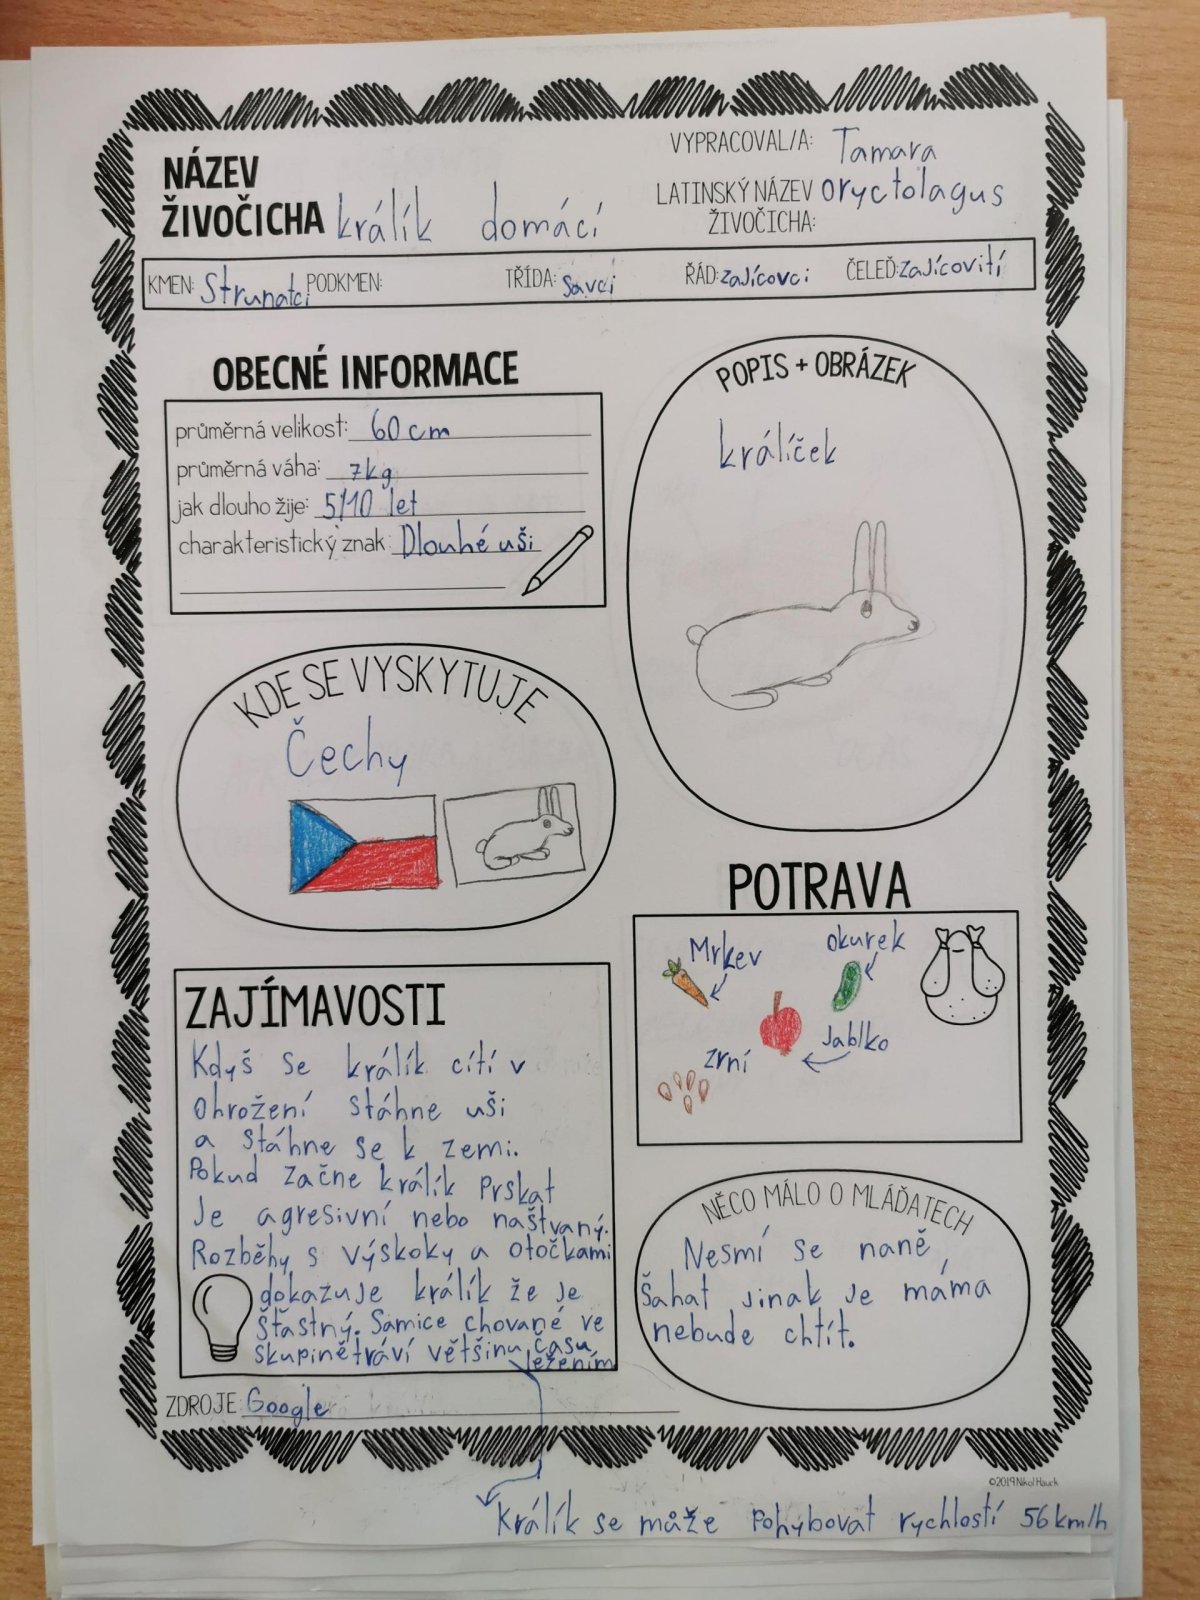 NÁZEV
ŽIVOČICHA králík domácí
VYPRACOVAL/A: Tamara
LATINSKÝ NÁZEV oryctolagus
ŽIVOČICHA:
KMEN: Strunatci PODKMEN: TŘÍDA: savci ŘÁD: zajícovci ČELEĎ: zajícovití
OBECNÉ INFORMACE
průměrná velikost: 60 cm
průměrná váha: 7kg
jak dlouho žije: 5/10 let
charakteristický znak: Dlouhé uši
POPIS + OBRÁZEK
králíček
KDE SE VYSKYTUJE
Čechy
POTRAVA
Mrkev
okurek
Jablko
zrní
ZAJÍMAVOSTI
Kdyš se králík cítí v
ohrožení stáhne uši
a stáhne se k zemi.
Pokud začne králík Prskat
Je agresivní nebo naštvaný.
Rozběhy s výskoky a otočkami
dokazuje králík že je
šťastný. Samice chované ve
skupinětráví většinu času
ležením
NĚCO MÁLO O MLÁĎATECH
Nesmí se naně
šahat jinak je máma
nebude chtít.
ZDROJE: Google
©2019 Nikol Hauck
Králík se může Pohybovat rychlostí 56 km/h